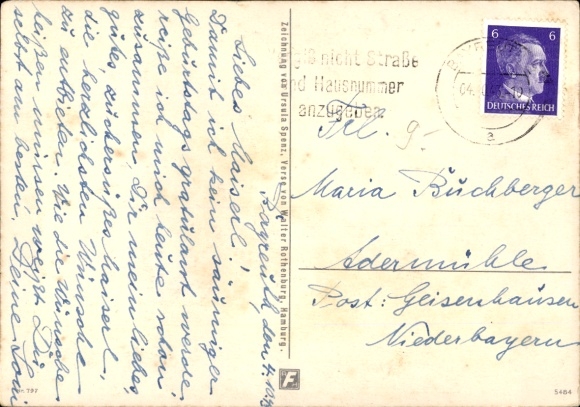 Bayreuth, den 4.
Liebes Maiserl!
Damit ich kein säumiger
Geburtstags gratulant werde
reiße ich mich heute schon
zusammen, Dir mein liebes,
gutes, zuckersüßes Maiserl,
die herzlichsten Wünsche
zu entbieten. Wie die Wünsche
heißen müssen weißt Du
selbst am besten. Deine Loni
Zeichnung von Ursula Spenz, Verse von Walter Rothenburg, Hamburg.
nicht Straße
Hausnummer
anzugeben
6 6
DEUTSCHES REICH
a
Frl. g.
Maria Buchberger
Adermühle
Post: Geisenhausen
Niederbayern
F
5484